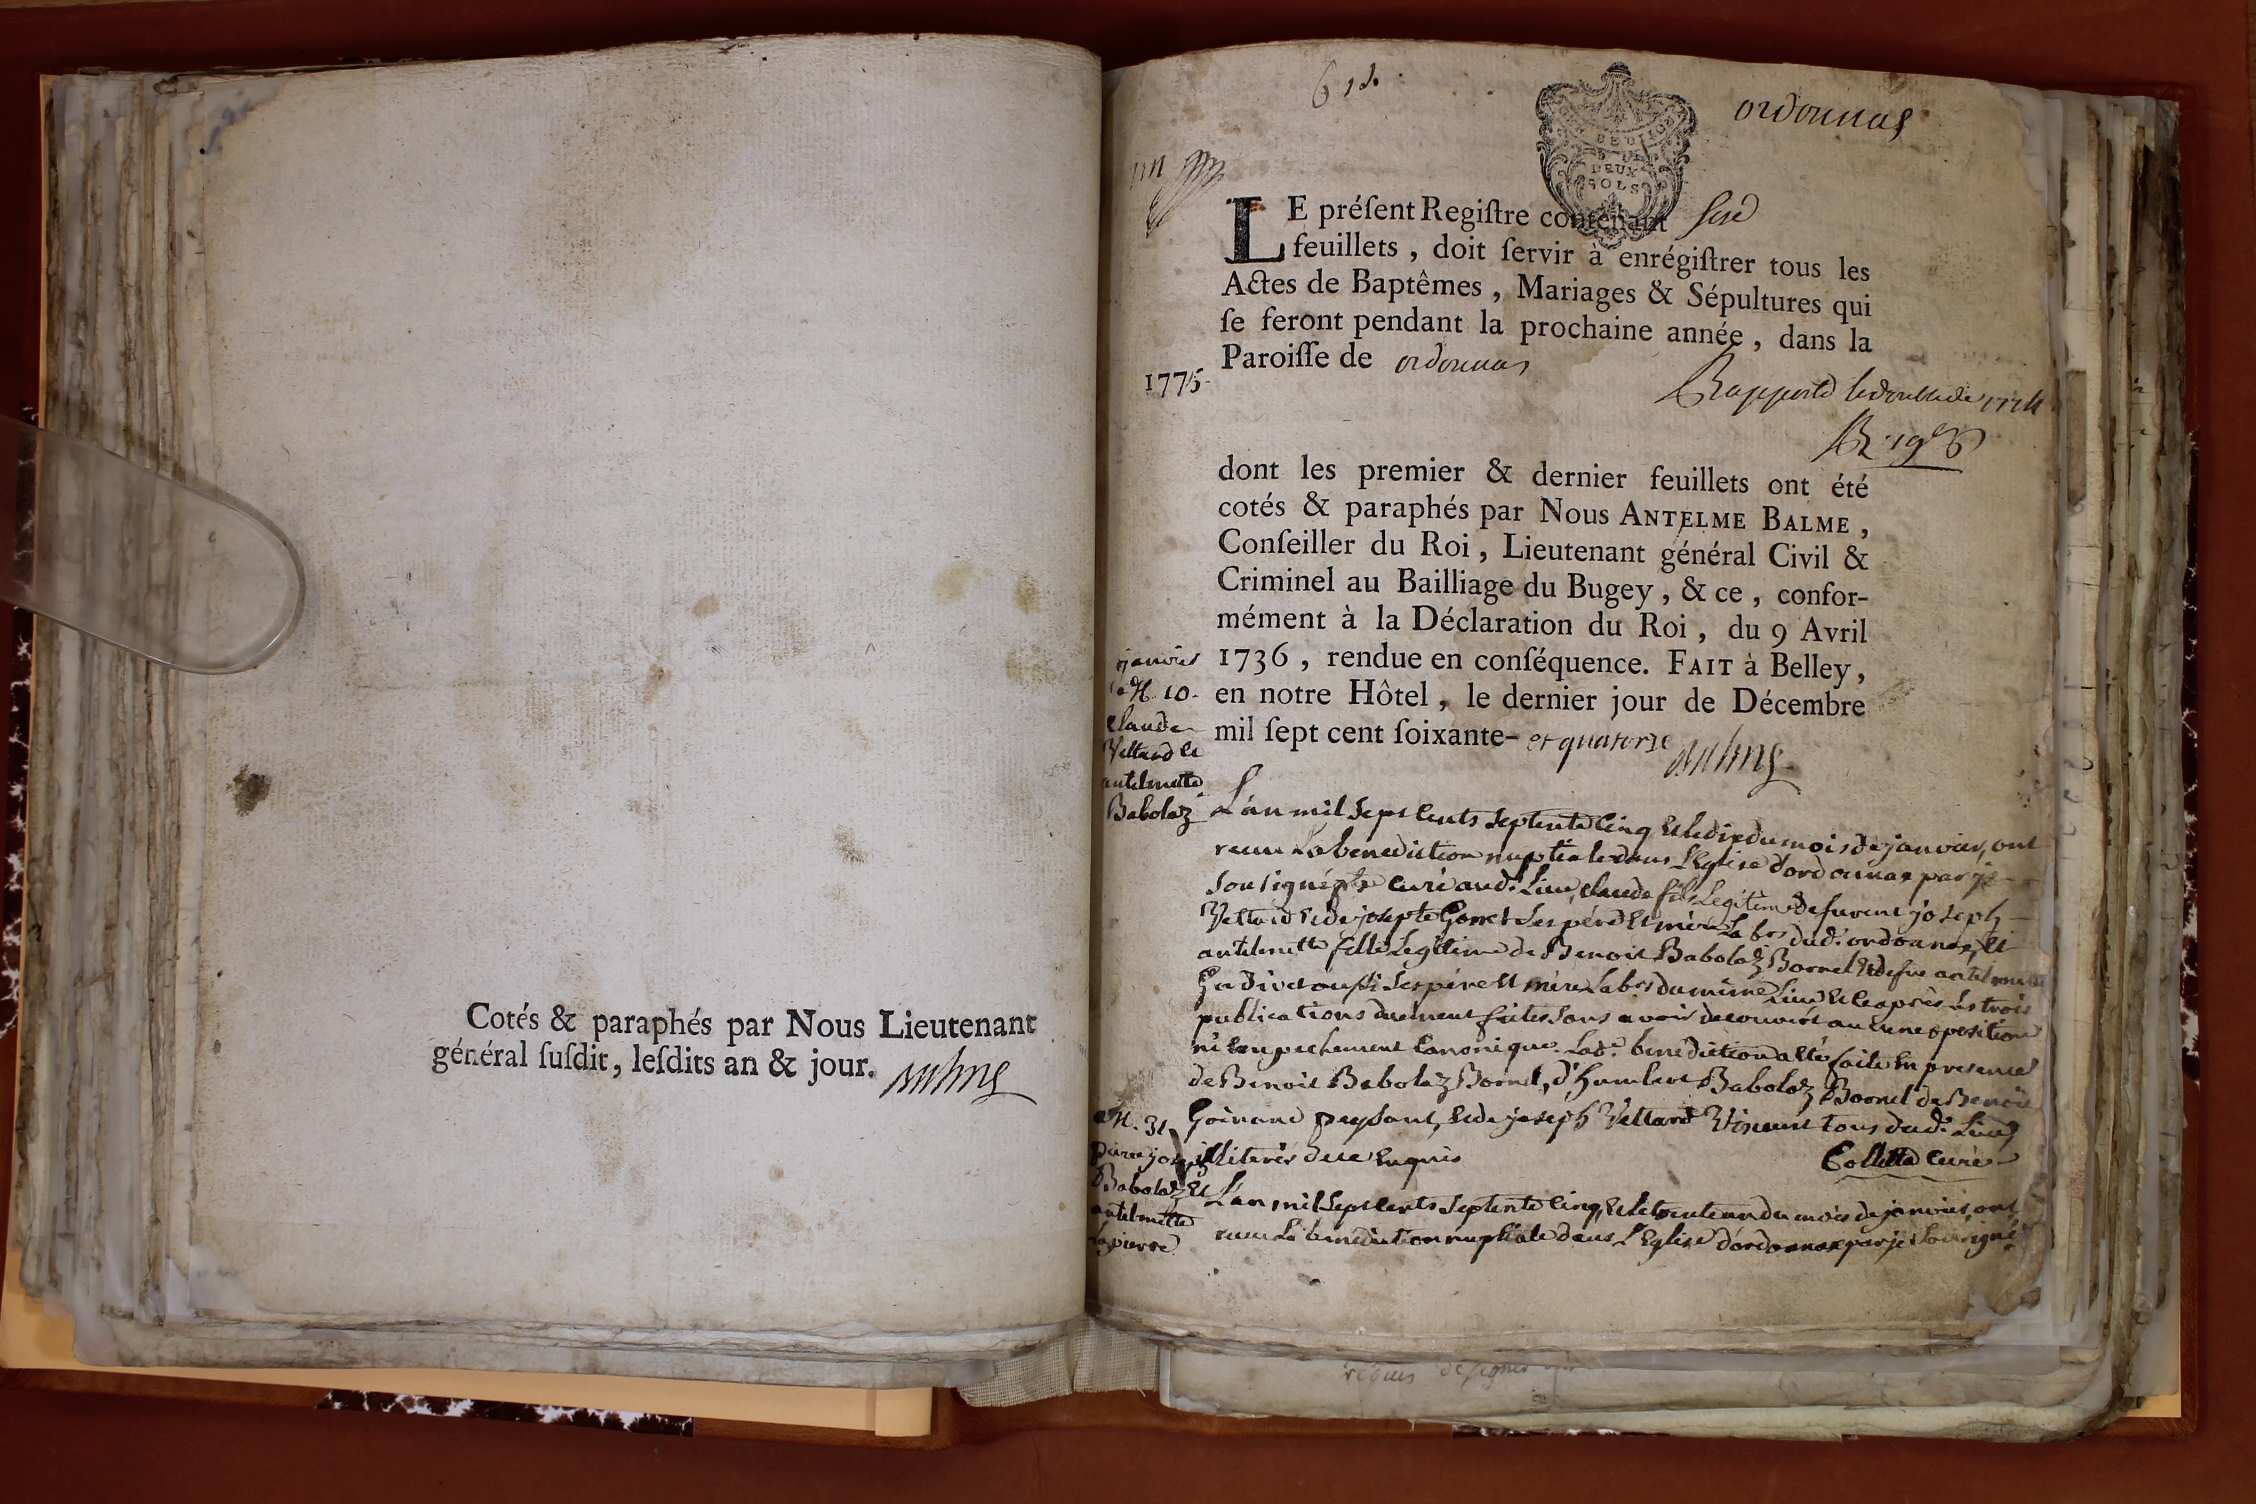 Cotés & paraphés par Nous Lieutenant
général ſuſdit, leſdits an & jour.
ordonnas
DEUX
SOLS
LE préſent Regiſtre contenant
feuillets, doit ſervir à enrégiſtrer tous les
Actes de Baptêmes, Mariages & Sépultures qui
ſe feront pendant la prochaine année, dans la
Paroiſſe de ordonnas
1775
Rapporté le double de 1774
dont les premier & dernier feuillets ont été
cotés & paraphés par Nous ANTELME BALME,
Conſeiller du Roi, Lieutenant général Civil &
Criminel au Bailliage du Bugey, & ce, confor-
mément à la Déclaration du Roi, du 9 Avril
1736, rendue en conſéquence. FAIT à Belley,
en notre Hôtel, le dernier jour de Décembre
mil ſept cent ſoixante- et quatorze
janvier
10
claude
Vettard et
antelmette
Babolaz
L'an mil sept cents septente cinq et le dix du mois de janvier, ont
receu La benediction nuptiale dans L'Eglise d'ordonnas par je
sousigné curé aud. Lieu, claude fils Legitime de furent joseph
Vettard et de josepte Gonet ses père et mère Labrs dud. ordonnas, et
antelmette fille Legitime de Benoit Babolaz Bornel et de fue antelmette
aussi ses père et mère Labrs du même Lieu et ce après Les trois
publications duement faites sans avoir decouvert aucune oposition
ni empechement Canonique. Lad. benediction a été faite en presence
de Benoit Babolaz Bornel, d'humbert Babolaz Bornel de Benoit
Goirand paysant, et de joseph Vettard Vincent tous dud. Lieu
illiterés de ce enquis
Collette curé
31
pierre joseph
Babolaz et
antelmette
Lapierre
L'an mil sept cents septente cinq, et le trente un du mois de janvier, ont
receu La benediction nuptiale dans L'Eglise d'ordonnas par je sousigné